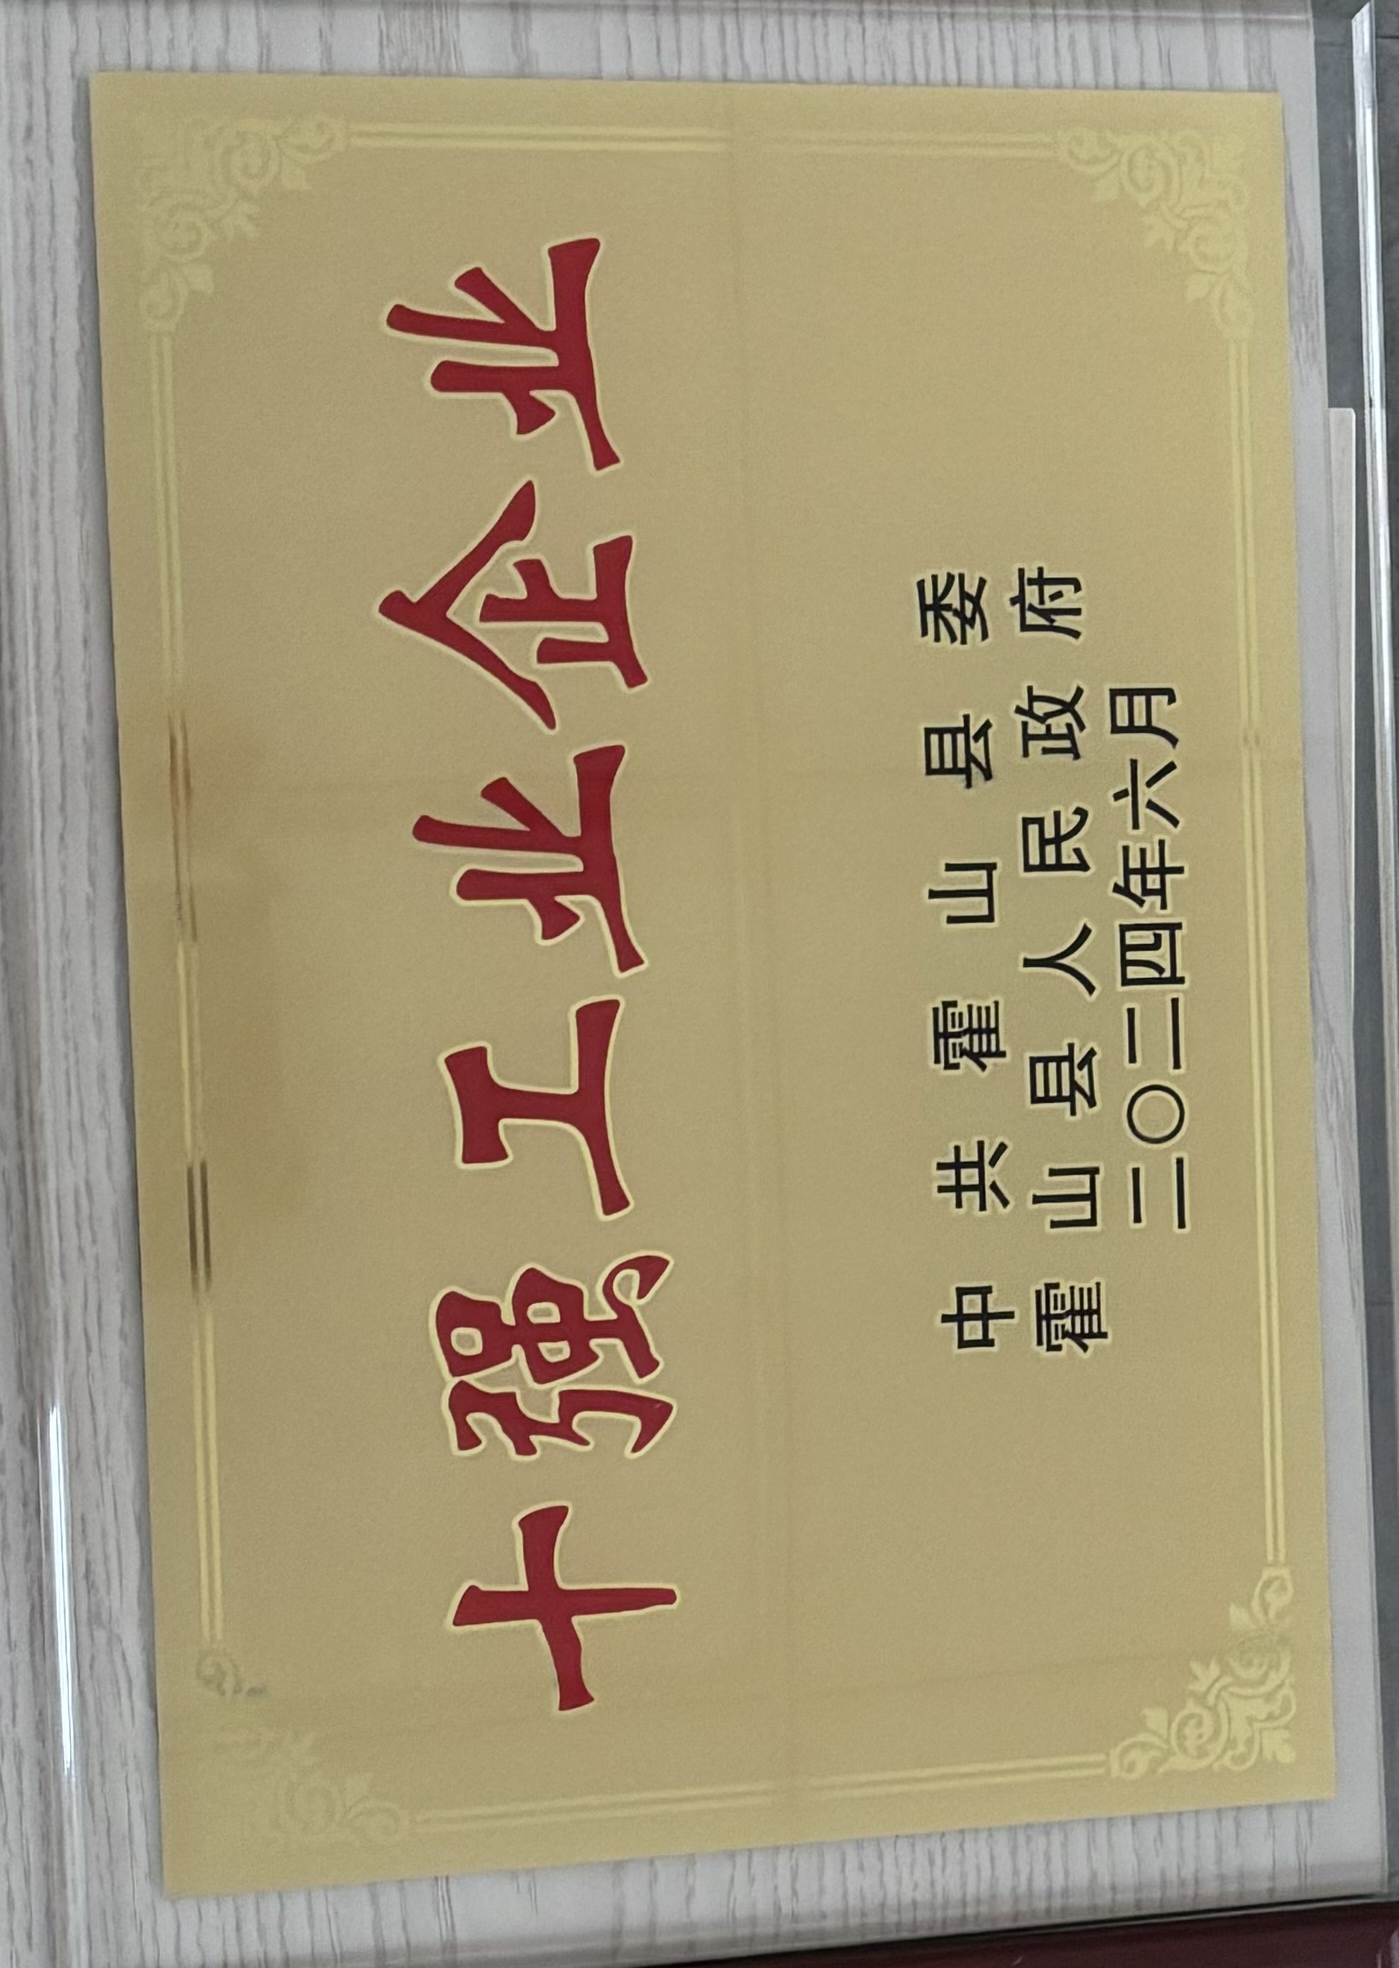 十强工业企业
中共霍山县委
霍山县人民政府
二〇二四年六月